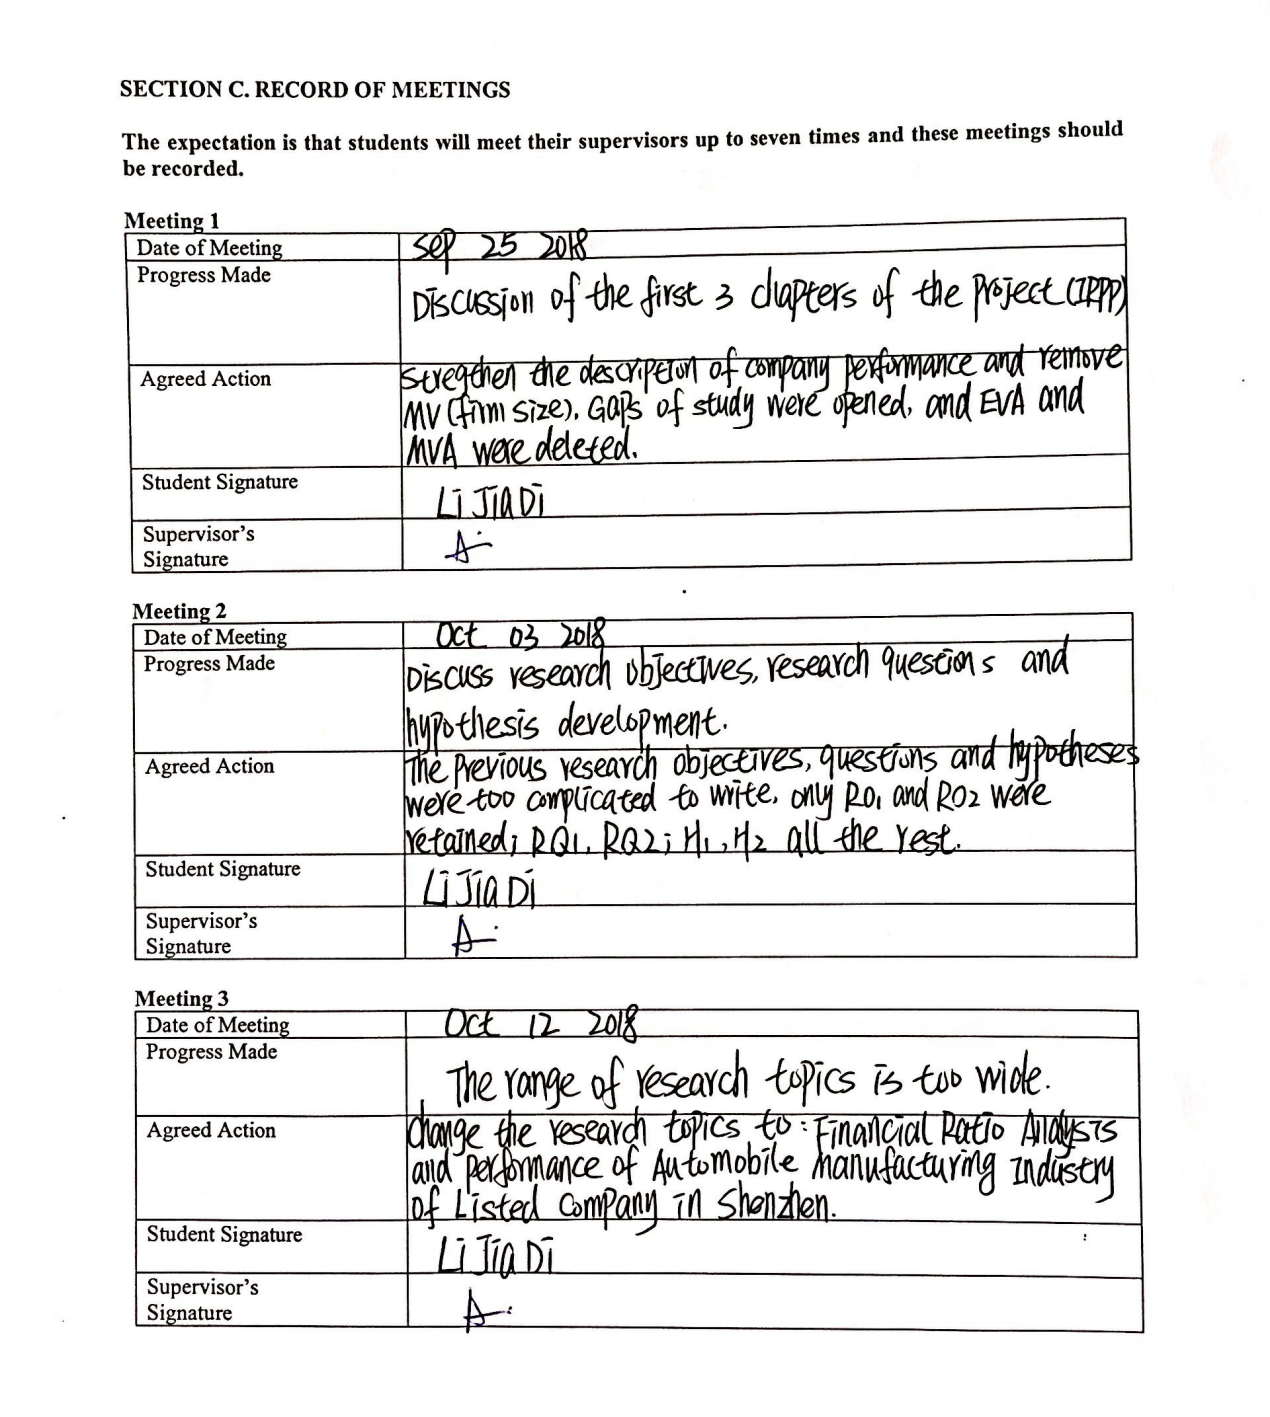 SECTION C. RECORD OF MEETINGS
The expectation is that students will meet their supervisors up to seven times and these meetings should
be recorded.
Meeting 1
Date of Meeting
Sep 25 2018
Progress Made
Discussion of the first 3 chapters of the Project (IPPP)
Agreed Action
Stregthen the description of company performance and remove
MV (firm size). Gaps of study were opened, and EVA and
MVA were deleted.
Student Signature
Li JiaDi
Supervisor's
Signature
Meeting 2
Date of Meeting
Oct 03 2018
Progress Made
Discuss research objectives, research questions and
hypothesis development.
Agreed Action
The previous research objectives, questions and hypotheses
were too complicated to write, only RO1 and RO2 were
retained; RQ1, RQ2; H1, H2 all the rest.
Student Signature
Li JiaDi
Supervisor's
Signature
Meeting 3
Date of Meeting
Oct 12 2018
Progress Made
The range of research topics is too wide.
Agreed Action
Change the research topics to: Financial Ratio Analysis
and performance of Automobile manufacturing Industry
of Listed Company in Shenzhen.
Student Signature
Li JiaDi
Supervisor's
Signature